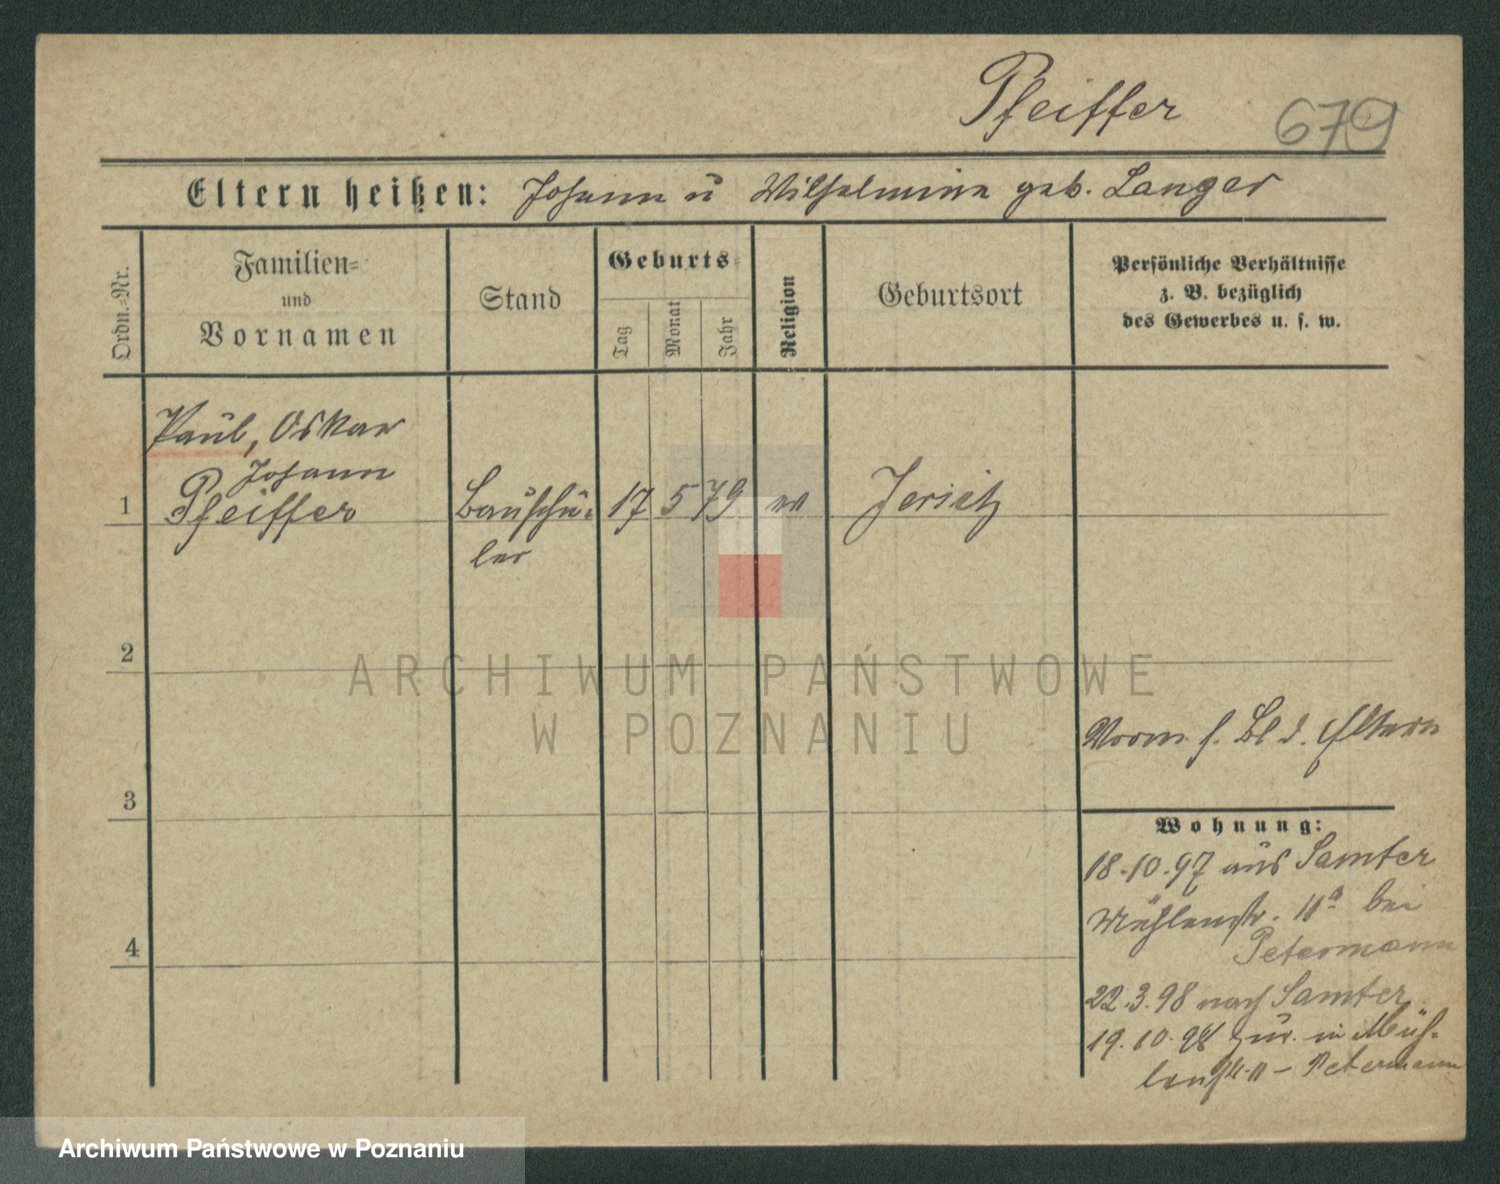 Pfeiffer 679
Eltern heißen: Johann u Wilhelmine geb. Langer
Ordn.-Nr.
Familien-
und
Vornamen
Stand
Geburts-
Tag
Monat
Jahr
Religion
Geburtsort
Persönliche Verhältnisse
z. B. bezüglich
des Gewerbes u. s. w.
Paul, Oskar
Johann
1 Pfeiffer Bauschü- 17 5 79 Jeritz
ler
2
ARCHIWUM PAŃSTWOWE
W POZNANIU
Vorm. s. Bl d. Eltern
3
Wohnung:
18.10.97 aus Samter
Mühlenstr. 11a bei
Petermann
4
22.3.98 nach Samter
19.10.98 zur. in Müh-
lenstr 11 - Petermann
Archiwum Państwowe w Poznaniu